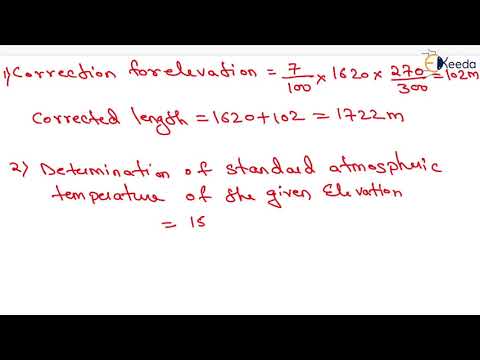 Keeda
1) Correction for elevation = 7/100 × 1620 × 270/300 = 102m
Corrected length = 1620 + 102 = 1722m
2) Determination of standard atmospheric
temperature of the given Elevation
= 15